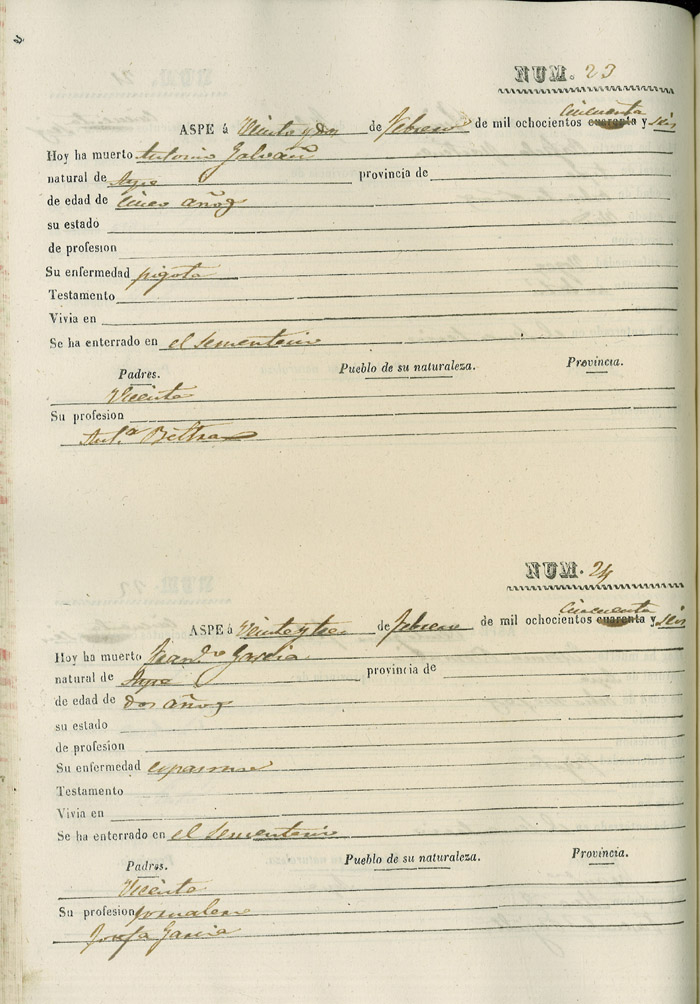 NUM. 23
cincuenta
ASPE á Veinte y dos de Febrero de mil ochocientos cuarenta y seis
Hoy ha muerto Antonio Galvañ
natural de Aspe provincia de
de edad de cinco años
su estado
de profesion
Su enfermedad pigota
Testamento
Vivia en
Se ha enterrado en el sementerio
Padres. Pueblo de su naturaleza. Provincia.
Vicente
Su profesion
Ant.ª Beltra
NUM. 24
Cincuenta
ASPE á Veinte y tres de Febrero de mil ochocientos cuarenta y seis
Hoy ha muerto Fran.co Garcia
natural de Aspe provincia de
de edad de dos años
su estado
de profesion
Su enfermedad espasmo
Testamento
Vivia en
Se ha enterrado en el sementerio
Padres. Pueblo de su naturaleza. Provincia.
Vicente
Su profesion jornalero
Josefa Garcia